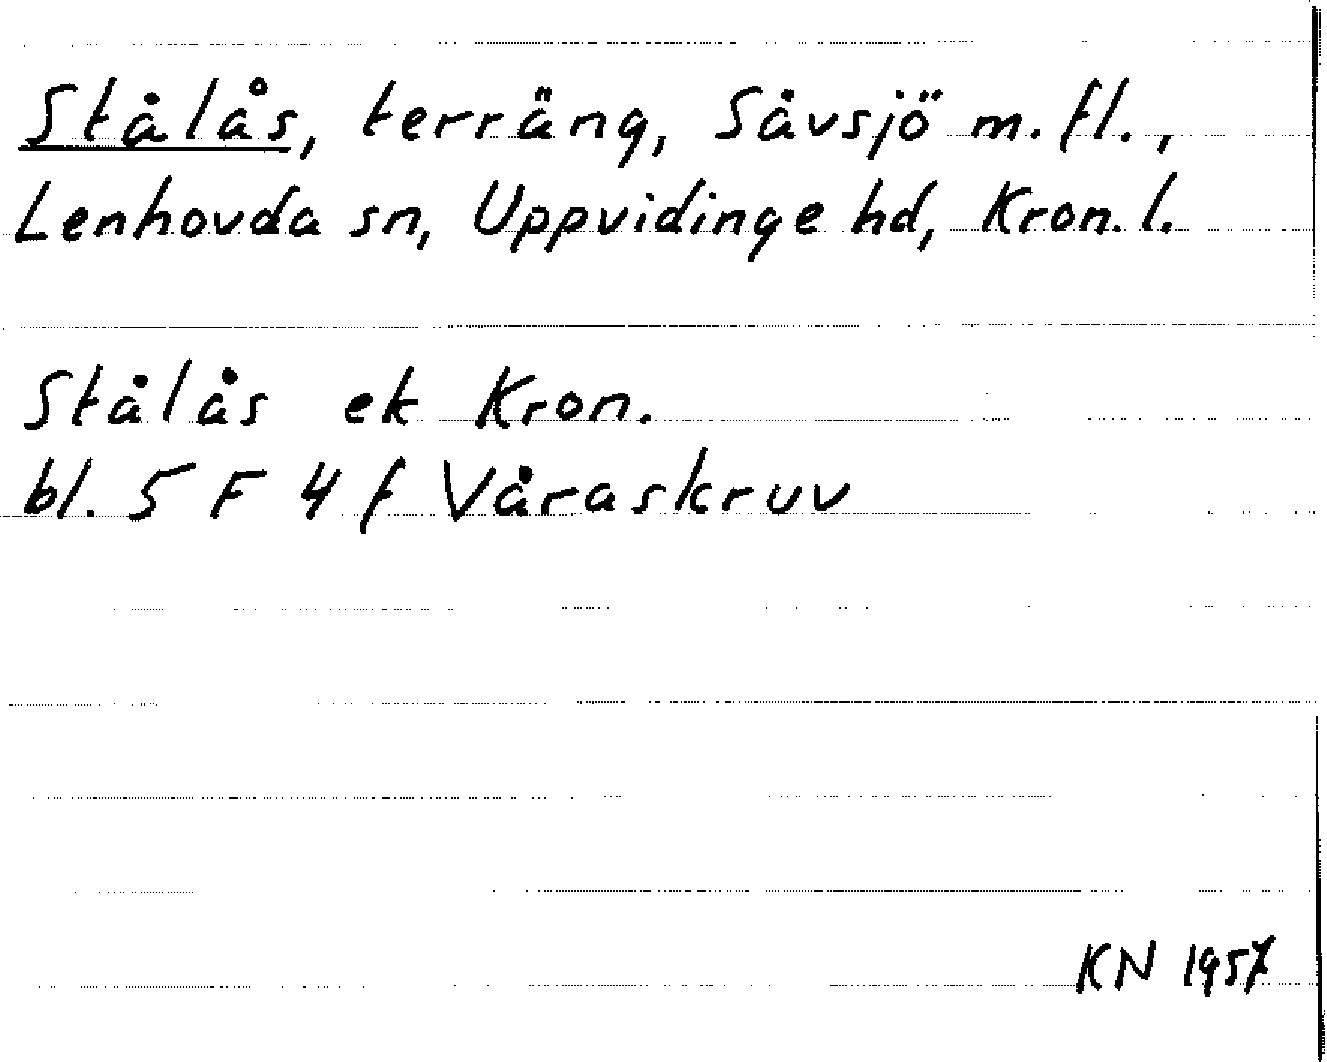 Stålås, terräng, Såvsjö m. fl.,
Lenhovda sn, Uppvidinge hd, Kron. l.
Stålås ek Kron.
bl. 5 F 4 f Våraskruv
KN 1957